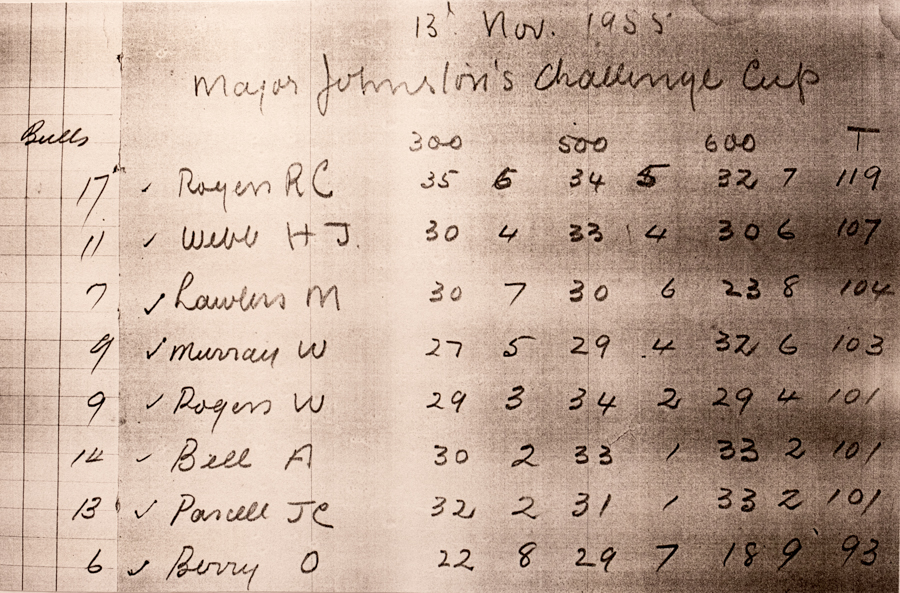 13' Nov. 1955
Major Johnston's Challenge Cup
Bulls 300 500 600 T
17 ✓ Rogers R C 35 6 34 5 32 7 119
11 ✓ Webb H J. 30 4 33 4 30 6 107
7 ✓ Lawless M 30 7 30 6 23 8 104
9 ✓ Murray W 27 5 29 4 32 6 103
9 ✓ Rogers W 29 3 34 2 29 4 101
14 ✓ Bell A 30 2 33 1 33 2 101
13 ✓ Parcell J C 32 2 31 1 33 2 101
6 ✓ Berry O 22 8 29 7 18 9 93